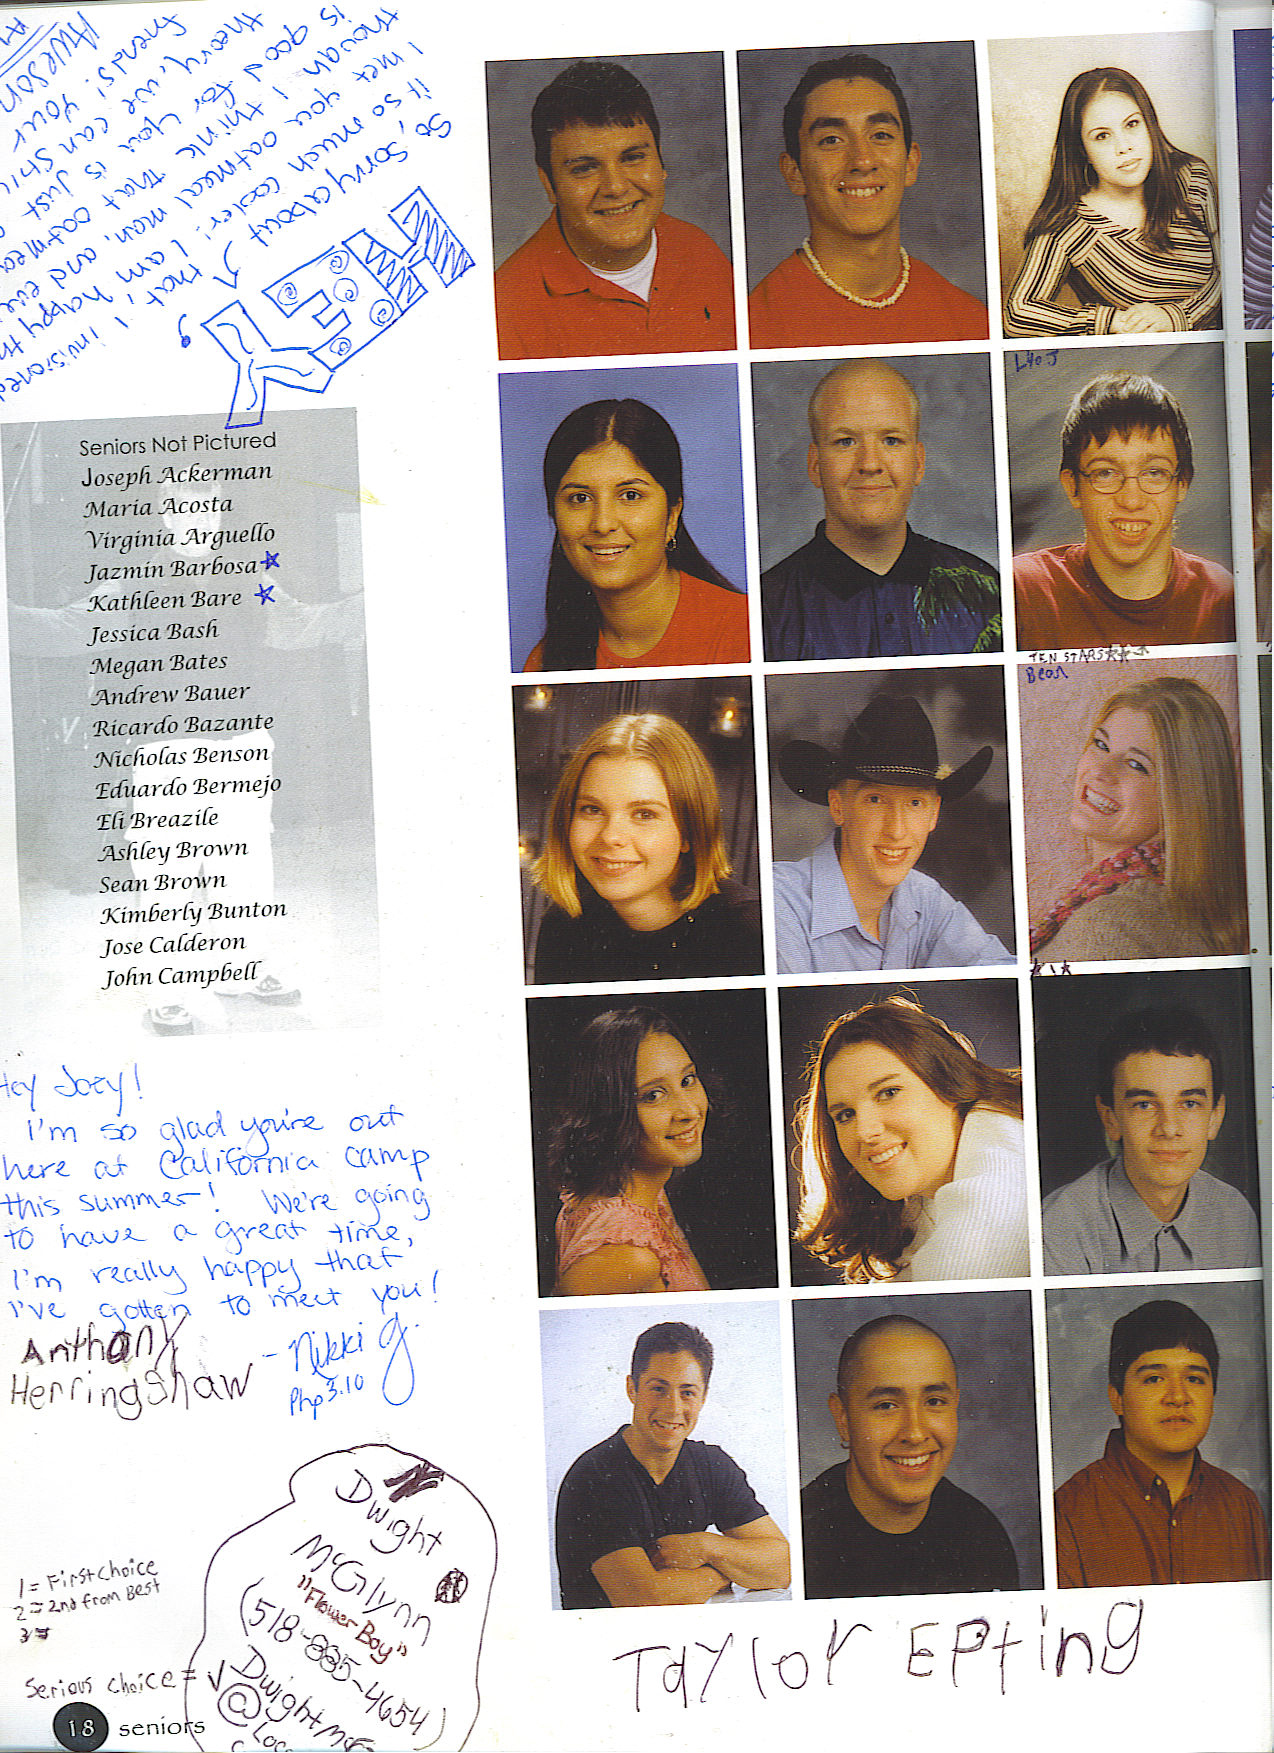 So, sorry about that! I
it so much cooler! I am
I met you oatmeal man, and
though I think that
is good for you is just
theory, we can still
friends! Your
AWESOM
Seniors Not Pictured
Joseph Ackerman
Maria Acosta
Virginia Arguello
Jazmin Barbosa
Kathleen Bare
Jessica Bash
Megan Bates
Andrew Bauer
Ricardo Bazante
Nicholas Benson
Eduardo Bermejo
Eli Breazile
Ashley Brown
Sean Brown
Kimberly Bunton
Jose Calderon
John Campbell
Hey Joey!
I'm so glad you're out
here at California Camp
this summer! We're going
to have a great time,
I'm really happy that
I've gotten to meet you!
- Nikki G.
Php 3.10
Anthony
Herringshaw
Dwight
McGlynn
"Flower Boy"
(518-885-4654)
Dwightmc
@
1 = First Choice
2 = 2nd from Best
3 =
Serious Choice = √
18 seniors
TEN STARS
Bear
Taylor Epting